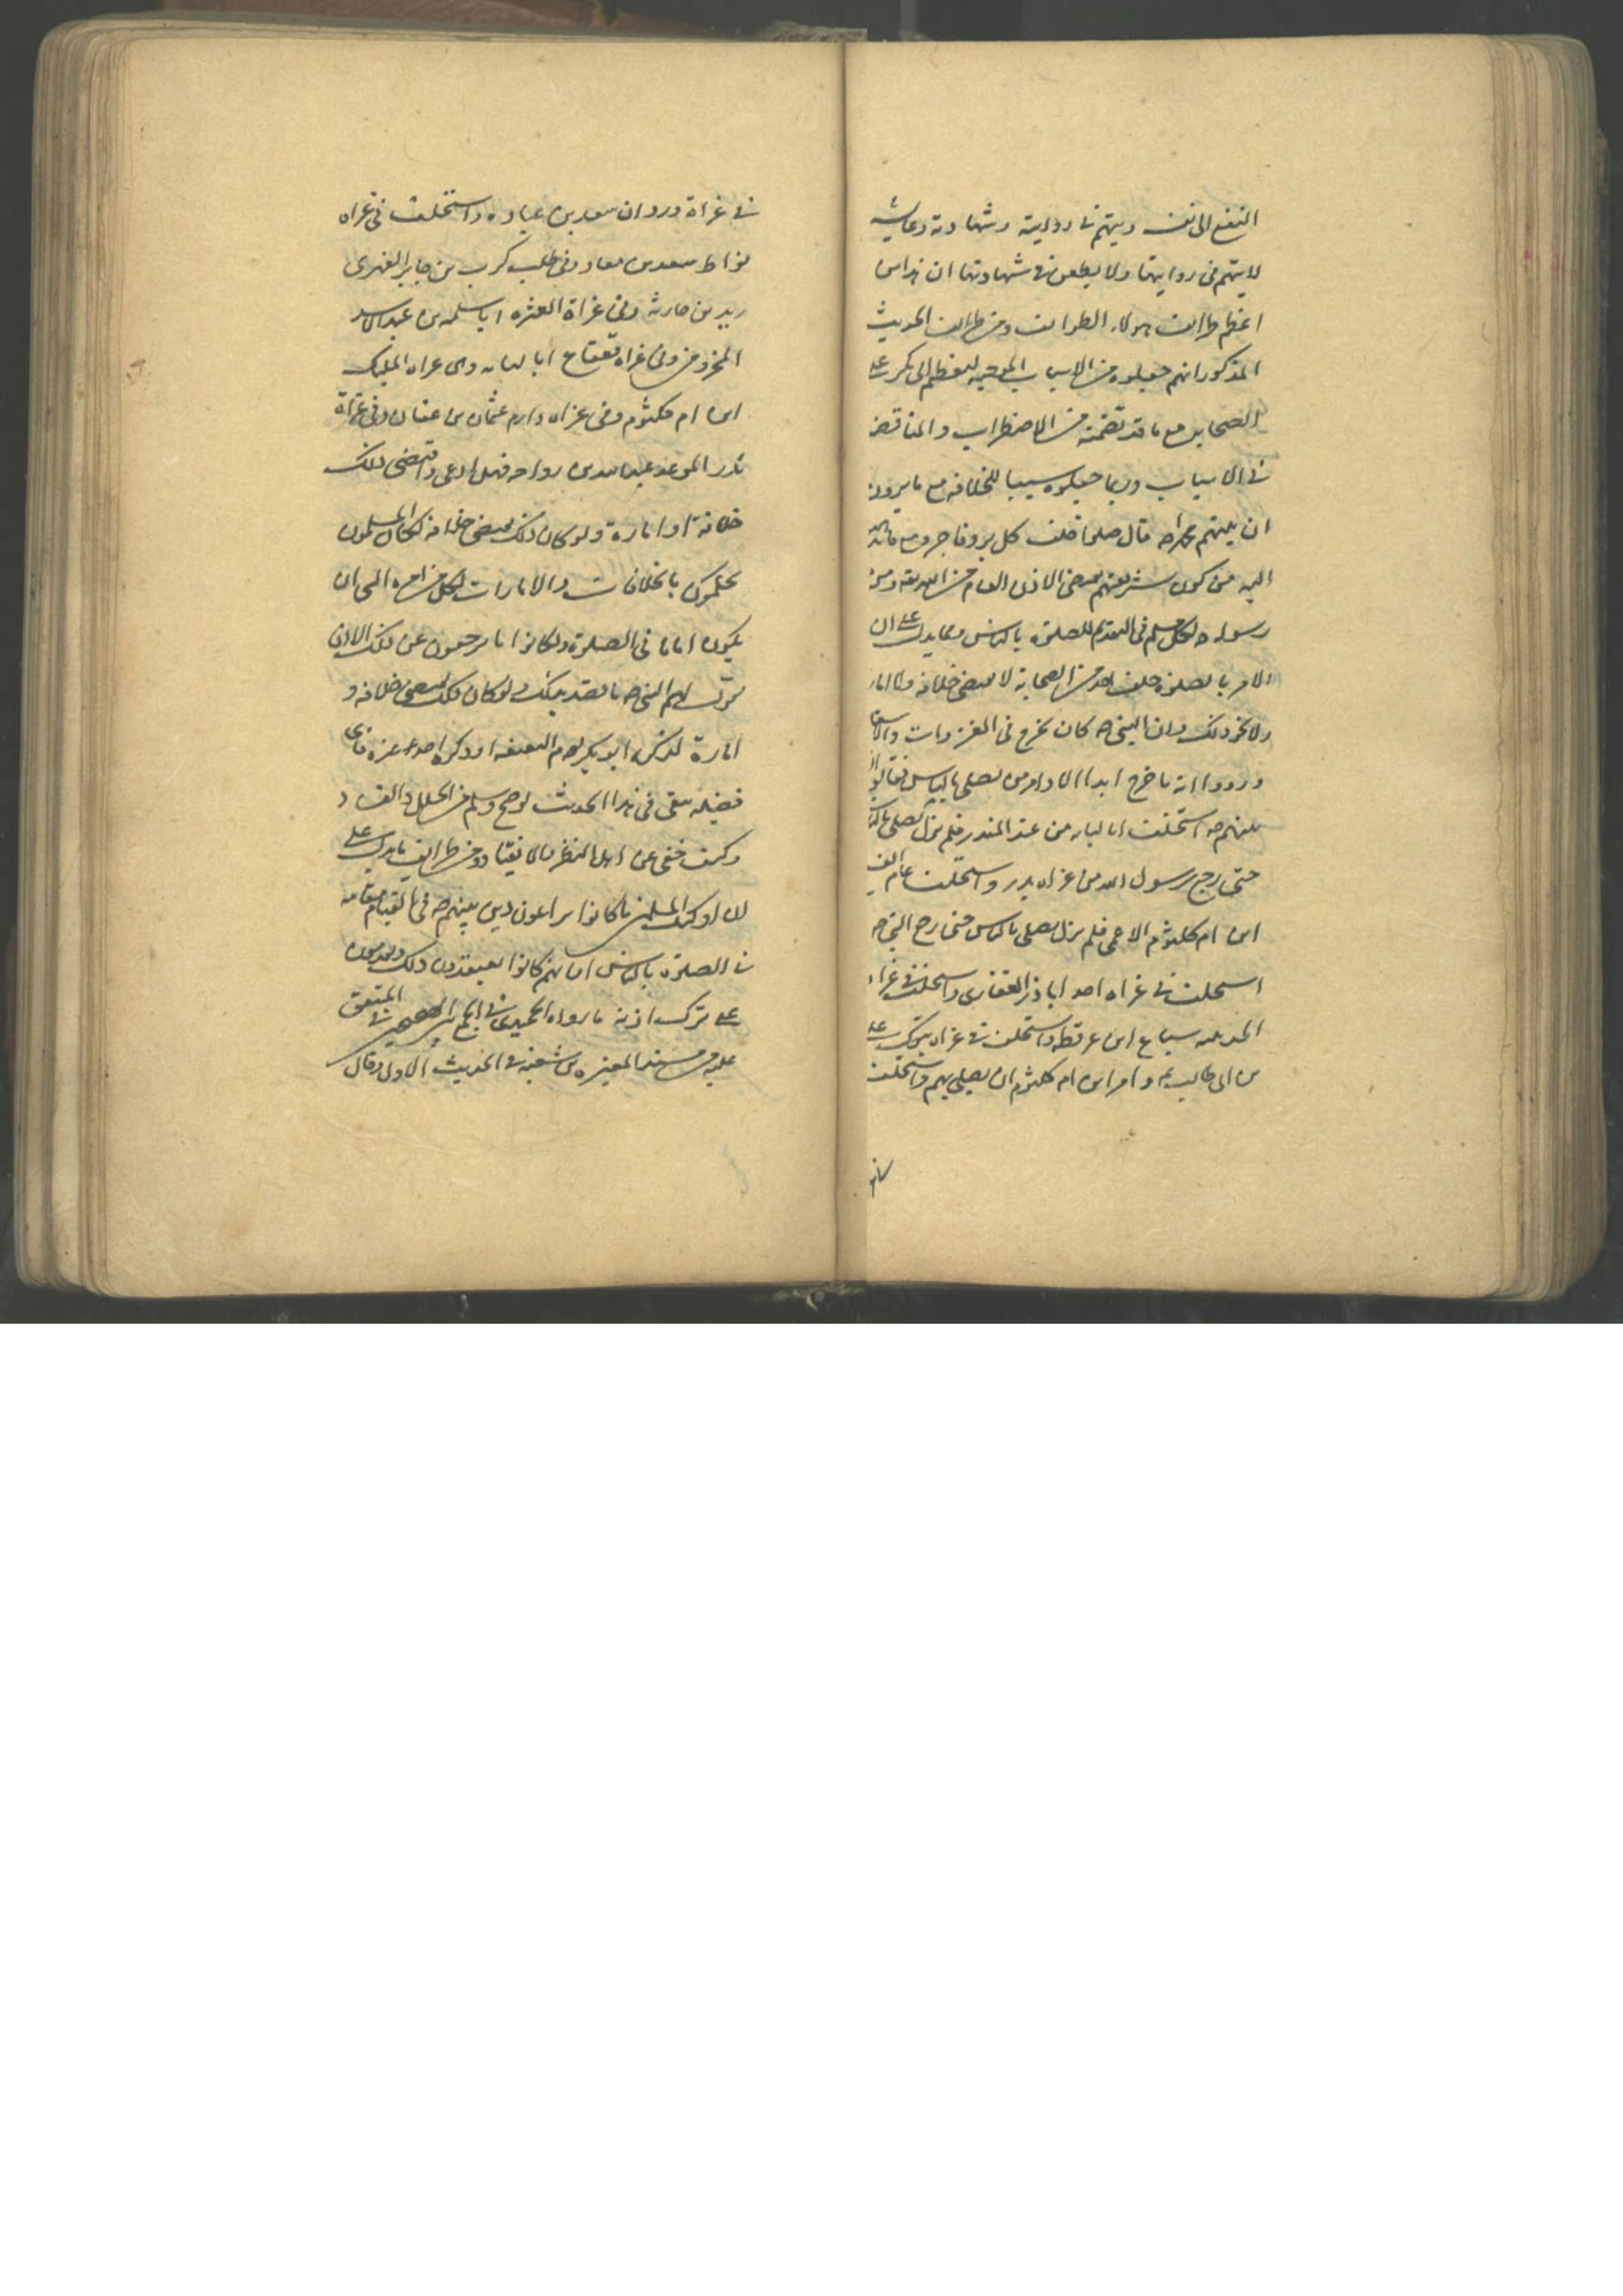 النفع الى نفسه ويتهم في روايته وشهادته وعايشه
لا يتهم في روايتها ولا يطعن في شهادتها ان هذا من
اعظم طرائف هولاء الطوائف ومن طرائف الحديث
المذكور انهم جعلوه من الاسباب الموجبه لتعظيم ابى بكر على
الصحابه مع ما قد تضمنه من الاضطراب والمناقضه
في الاسباب وربما جعلوه سببا للخلافه مع ما يروون
ان نبيهم محمدا ص قال صلوا خلف كل بر وفاجر ومع
اليه من كون شريعتهم تقتضى الاذن العام من الله تعه ومن
رسوله ص لكل مسلم فى التقدم للصلوة بالناس ومما يدل على ان
الامر بالصلوة خلف احد من الصحابة لا يقتضى خلافه ولا اماره
ولا نحو ذلك وان النبى ص كان يخرج فى الغزوات والاسفار
ورووا انه ما خرج ابدا الا وامر من يصلى بالناس فقالوا
نبيهم ص استخلف ابا لبابه من عبد المنذر فلم يزل يصلى بالناس
حتى رجع رسول الله من غزاه بدر واستخلف عام الفتح
ابن ام كلثوم الاعمى فلم يزل يصلى بالناس حتى رجع النبى ص
استخلف في غزاه احد ابا ذر الغفارى واستخلف في غزاه
المدينه سباع ابن عرفطه واستخلف في غزاه تبوك على
بن ابى طالب ع وامر ابن ام كلثوم ان يصلى بهم واستخلف
في غزاة ودوان سعد بن عباده واستخلف فى غزاه
بواط سعد بن معاد وفى طلب كرب بن جابر الفهرى
زيد بن حارثه وفى غزاة العشره ابا سلمه بن عبد الاسد
المخزومى وفى غزاه قعقاع ابا لبابه وفى غزاه المليك
ابن ام مكتوم وفى غزاه دارم عثمان بن عفان وفى غزاة
بدر الموعد عبد الله بن رواحه فهل ادعى واقتضى ذلك
خلافة او امارة ولو كان ذلك يقتضى خلافه لكان المسلمون
يحكمون بالخلافات والامارات لكل من امره النبى ان
يكون اماما فى الصلوة ولكانوا ما يرجعون عن ذلك الا ان
يقول لهم النبى ص ما قصد بذلك ولو كان ذلك يقتضى خلافه و
امارة لذكره ابو بكر يوم السقيفه او ذكره احد غيره فاى
فضيله تبقى فى هذا الحديث لو صح وسلم من الخلل والفساد
وكيف خفى عن اهل النظر والانتقاد ومن طرائف ما يدل على
ان اولئك المسلمين ما كانوا يراعون دين نبيهم ص فى القيام مقامه
في الصلوة بالناس انهم كانوا يعتقدون ذلك ويقدمون
على ترك اذنه ما رواه الحميدى في الجمع بين الصحيحين في المتفق
عليه من مسند المغيره بن شعبه في الحديث الاول وقال